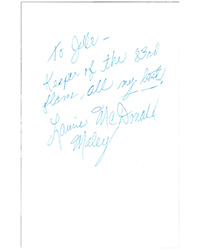 To Jele —
Keeper of the 83rd
flame, all my best!
Laurie McDonald
Maley